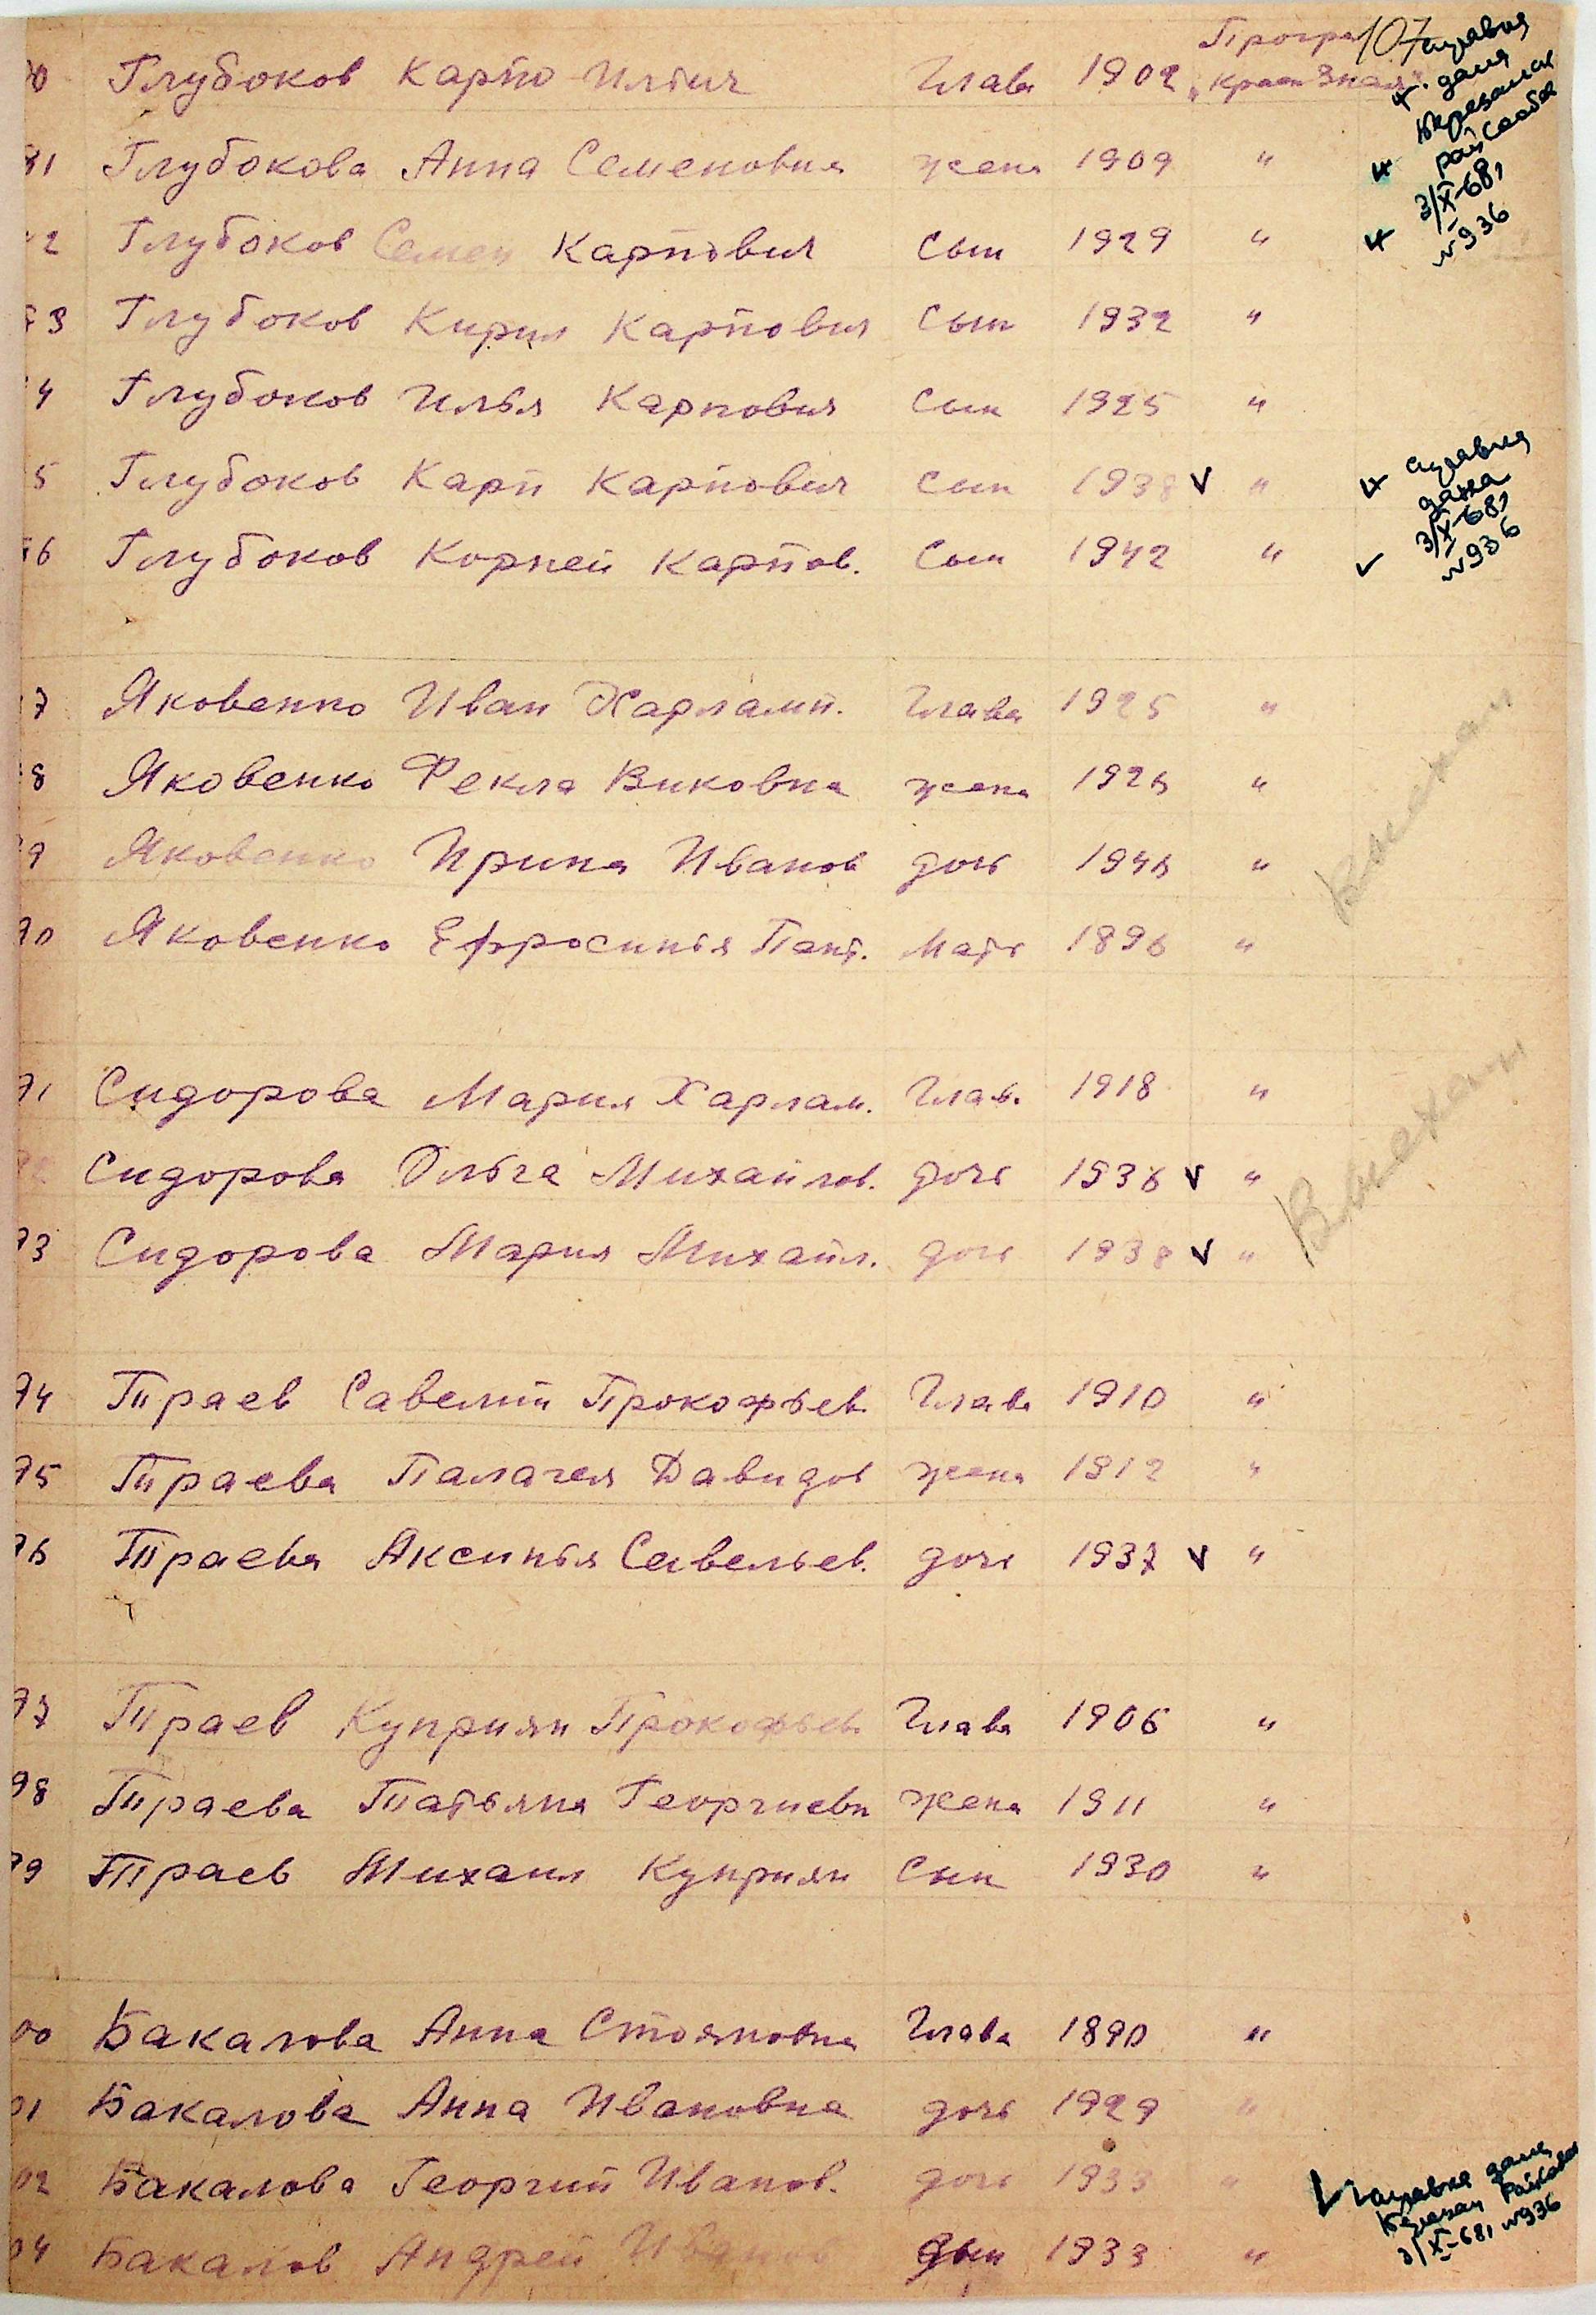 107
0 Глубоков Карпо Ильич Глава 1902 Прогре „Красн Знам"
справка дана Березанск рай Собес 3/X-68, №936
81 Глубокова Анна Семеновна жена 1909 "
2 Глубоков Семен Карпович сын 1929 "
3 Глубоков Кирил Карпович сын 1932 "
4 Глубоков Илья Карпович сын 1925 "
5 Глубоков Карп Карпович сын 1938 v "
справка дана 3/X-68, №936
6 Глубоков Корней Карпов. сын 1942 "
7 Яковенко Иван Харламп. Глава 1925 "
8 Яковенко Фекла Виковна жена 1926 "
9 Яковенко Ирина Иванов дочь 1946 "
90 Яковенко Ефросинья Пант. Мать 1896 "
Выехали
91 Сидорова Мария Харлам. Глав. 1918 "
Сидорова Ольга Михайлов. дочь 1936 v "
93 Сидорова Мария Михайл. дочь 1938 v "
Выехали
94 Траев Савелий Прокофьев. Глава 1910 "
95 Траева Палагея Давидов жена 1912 "
96 Траева Аксинья Савельев. дочь 1937 v "
97 Траев Куприян Прокофьев. Глава 1906 "
98 Траева Татьяна Георгиевн жена 1911 "
99 Траев Михаил Куприян сын 1930 "
00 Бакалова Анна Стояновна Глава 1890 "
01 Бакалова Анна Ивановна дочь 1929 "
02 Бакалова Георгий Иванов. дочь 1933 "
справка дана Березан Райсобес 3/X-68, №936
04 Бакалов Андрей Иванов сын 1933 "